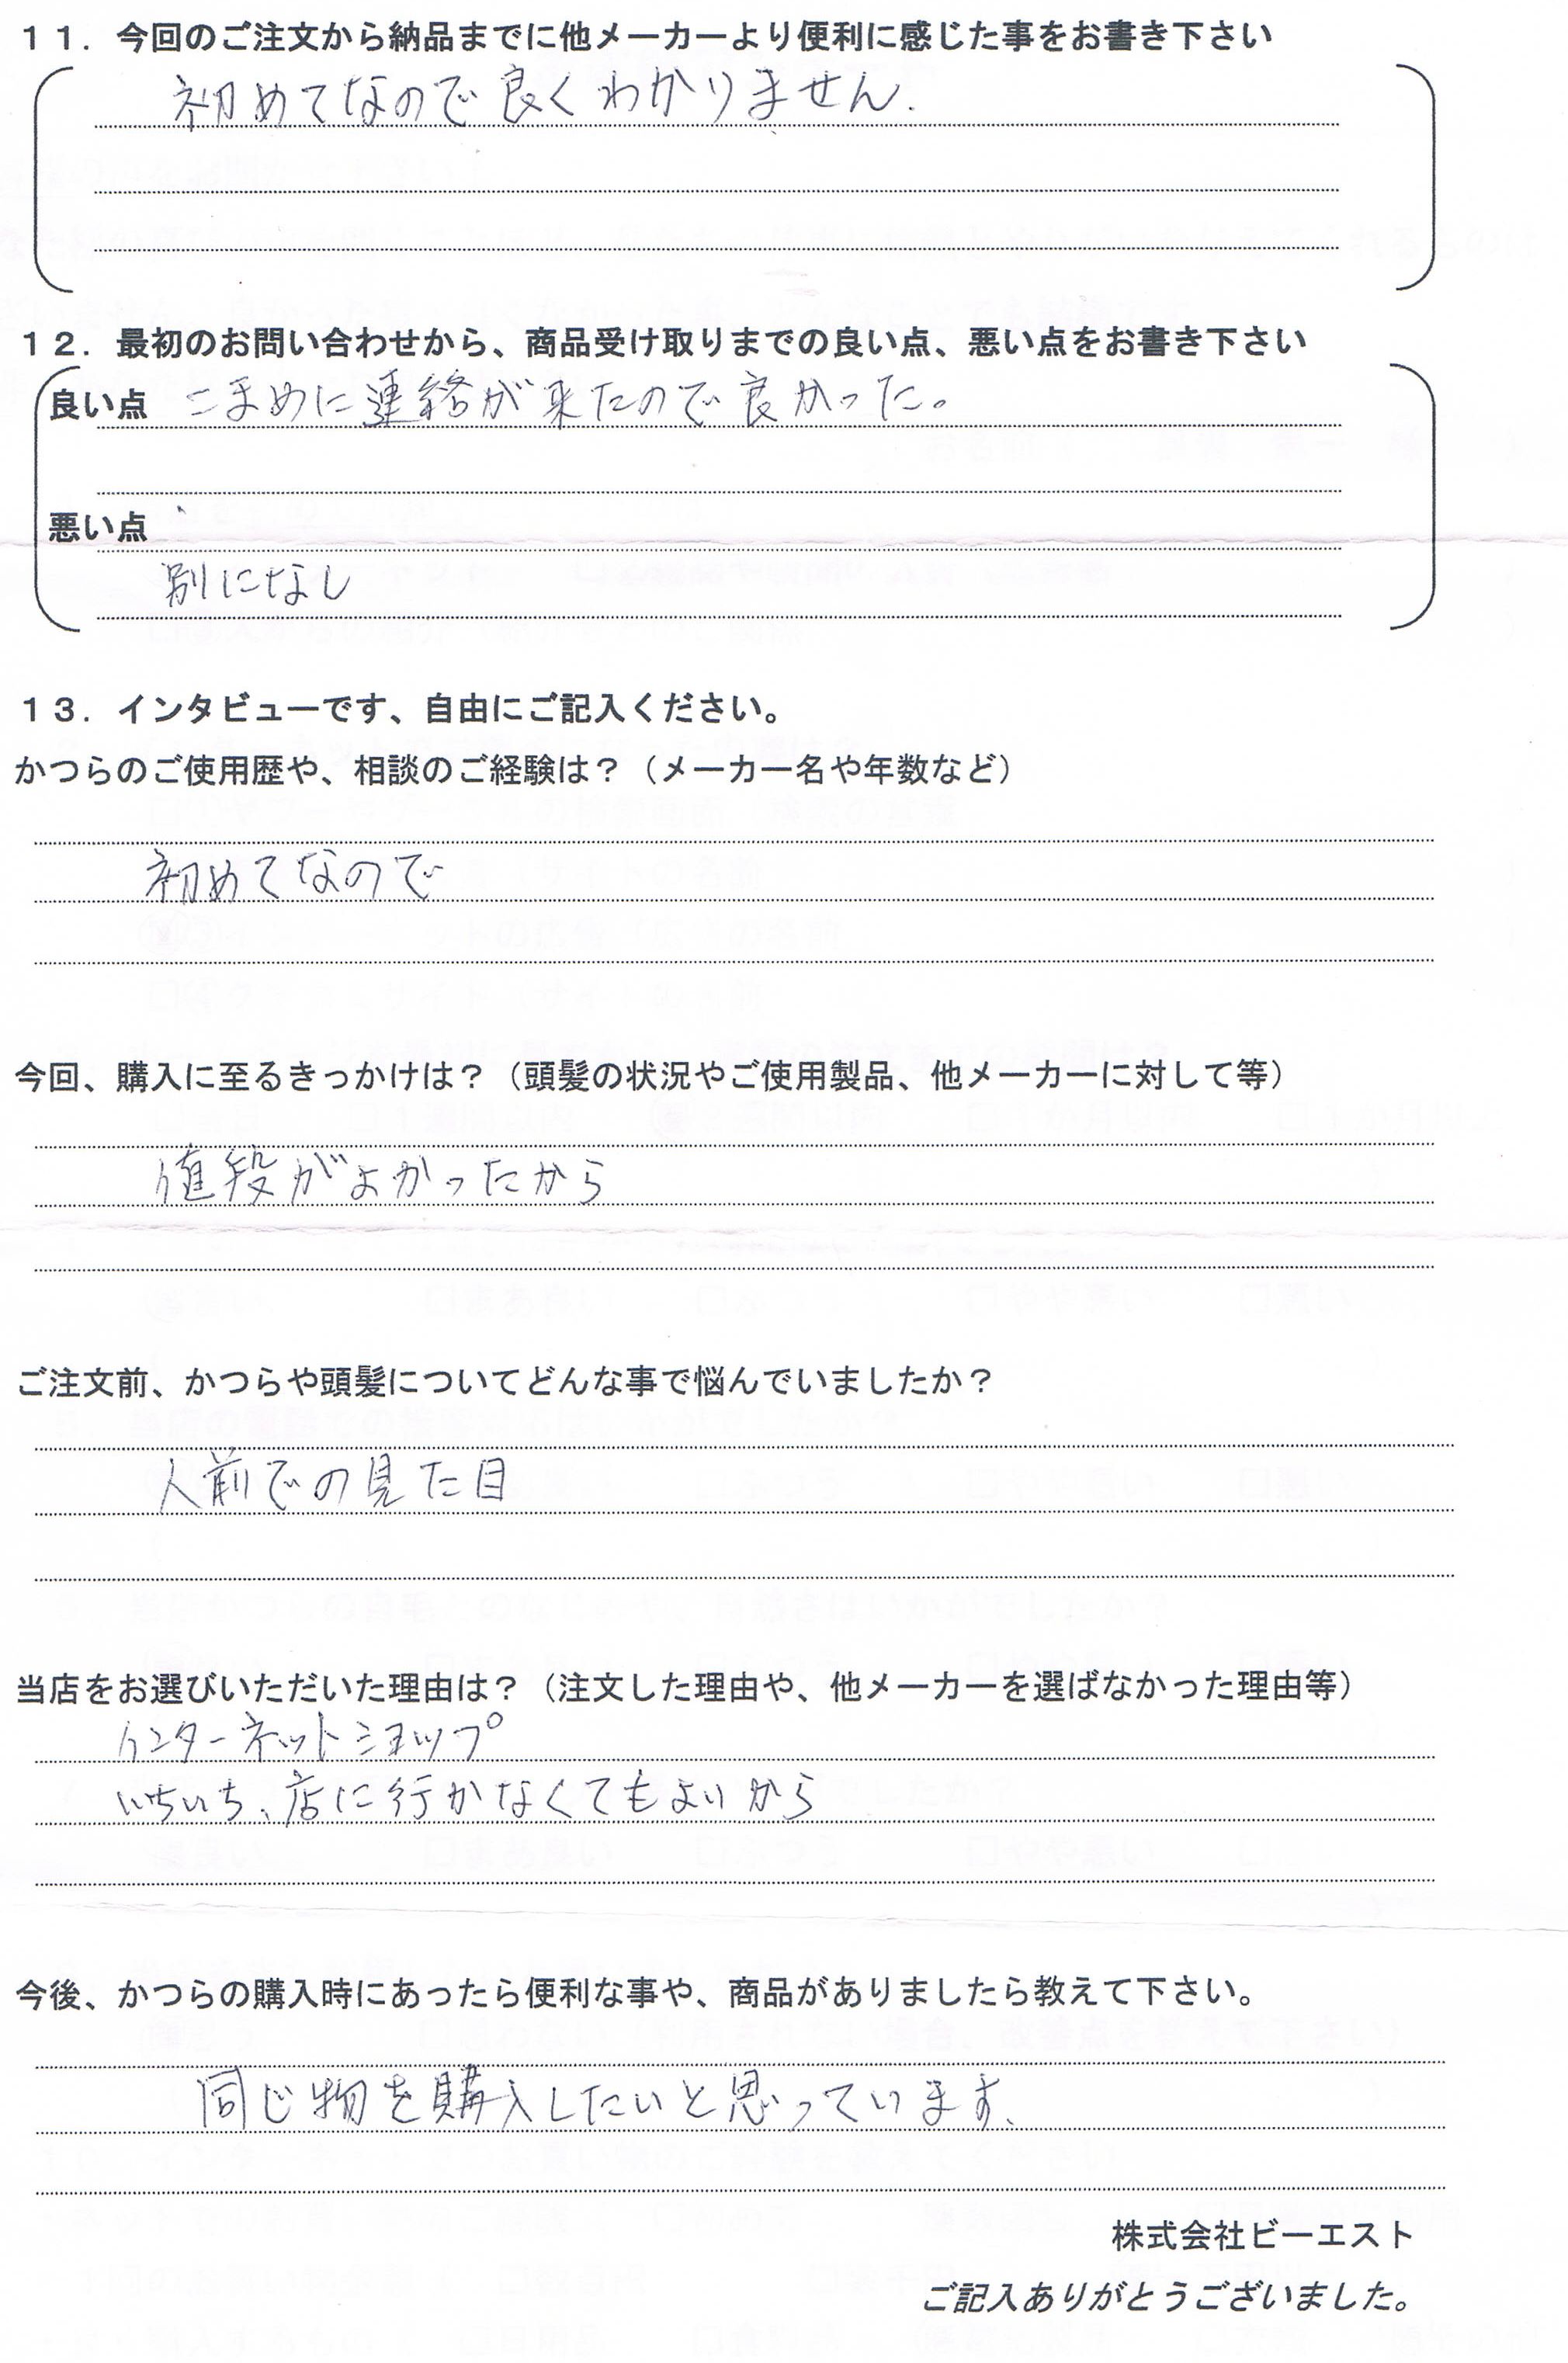 １１．今回のご注文から納品までに他メーカーより便利に感じた事をお書き下さい
初めてなので良くわかりません.
１２．最初のお問い合わせから、商品受け取りまでの良い点、悪い点をお書き下さい
良い点 こまめに連絡が来たので良かった。
悪い点
別になし
１３．インタビューです、自由にご記入ください。
かつらのご使用歴や、相談のご経験は？（メーカー名や年数など）
初めてなので
今回、購入に至るきっかけは？（頭髪の状況やご使用製品、他メーカーに対して等）
値段がよかったから
ご注文前、かつらや頭髪についてどんな事で悩んでいましたか？
人前での見た目
当店をお選びいただいた理由は？（注文した理由や、他メーカーを選ばなかった理由等）
インターネットショップ
いちいち、店に行かなくてもよいから
今後、かつらの購入時にあったら便利な事や、商品がありましたら教えて下さい。
同じ物を購入したいと思っています、
株式会社ビーエスト
ご記入ありがとうございました。